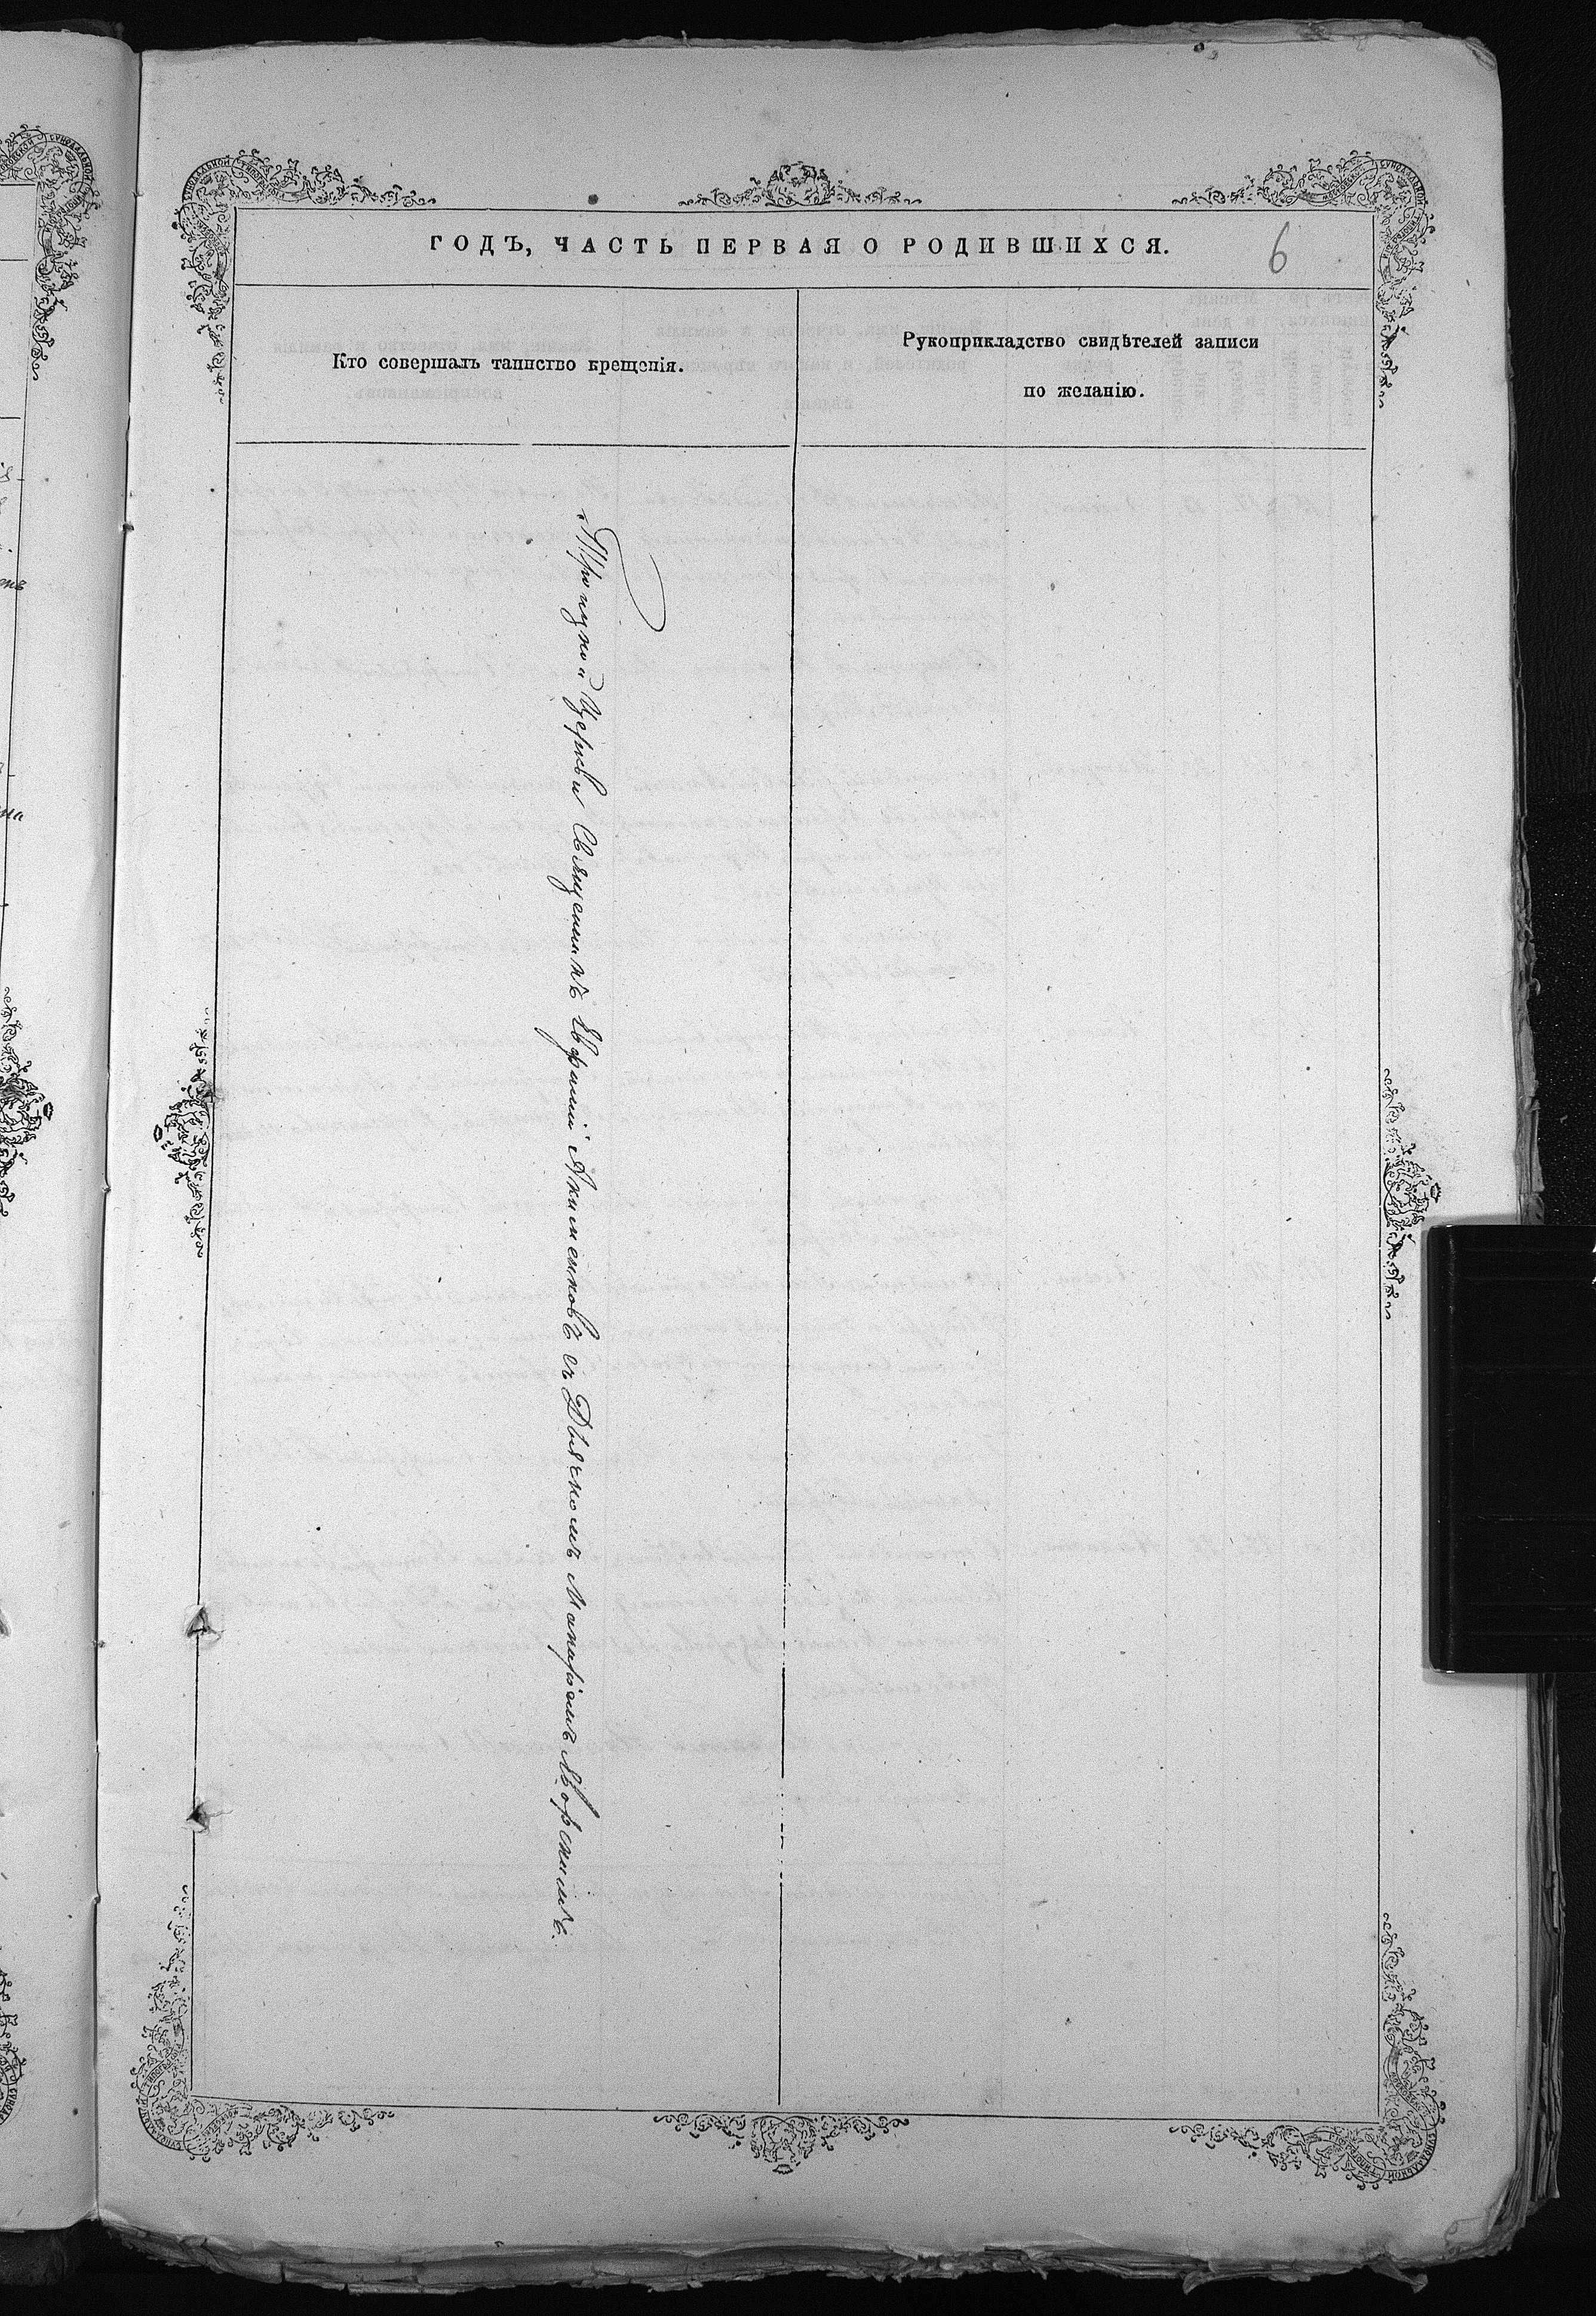 ГОДЪ, ЧАСТЬ ПЕРВАЯ О РОДИВШИХСЯ.
6
Кто совершалъ таинство крещенія.
Рукоприкладство свидѣтелей записи
по желанію.
Троицкой Церкви Священникъ Ефимій Акименковъ съ Дьячкомъ Макаріемъ